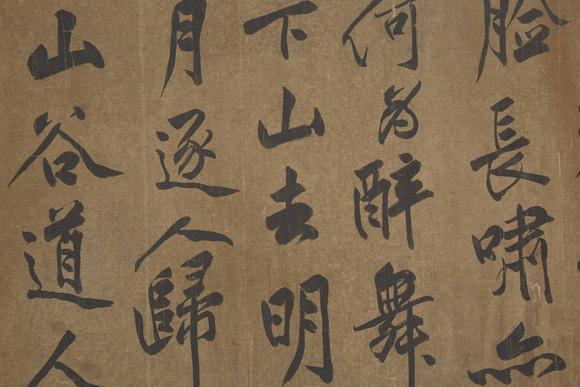 臉長嘯亦
何為醉舞
下山去明
月逐人歸
山谷道人